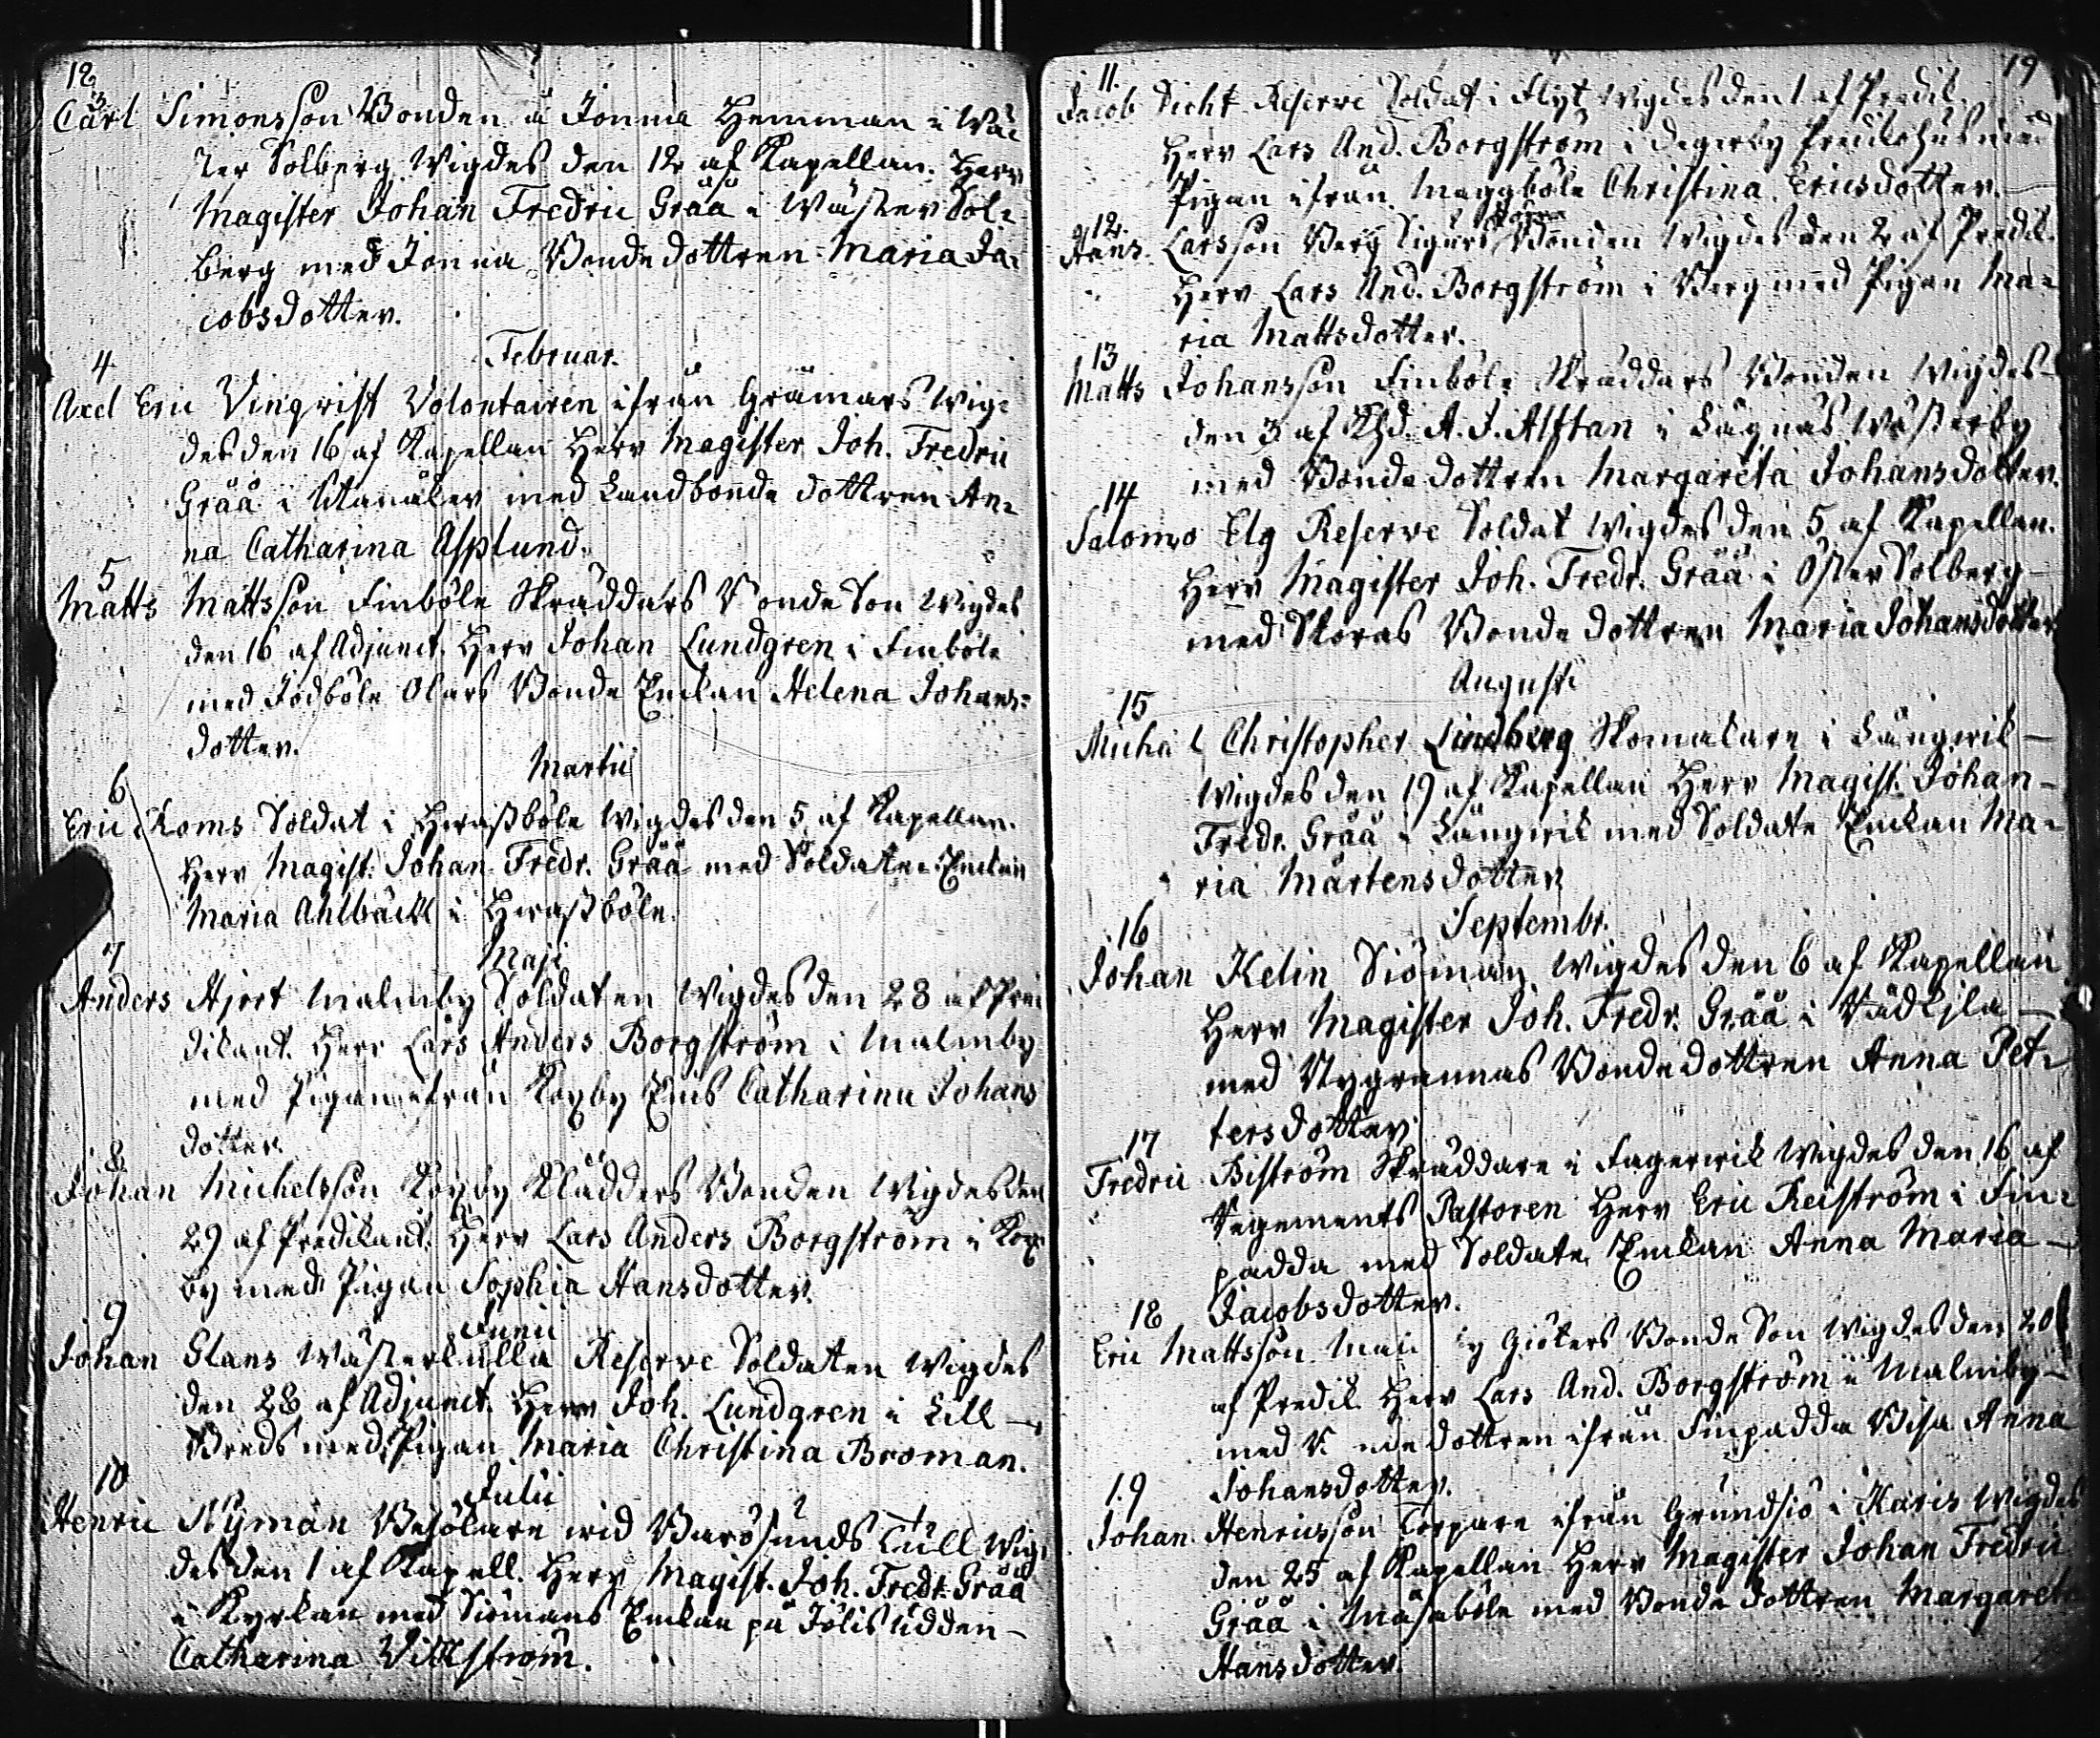 12
3
Carl Simonsson Bonden å Jonna Hemman i Wäs-
ter Solberg Wigdes den 12 af Kapellan. Herr
Magister Johan Fredric Gråå i Wäster Sol-
berg med Jonna Bondedottren Maria Ja-
cobsdotter.
Februar.
4
Axel Eric Vinqvist Volontairen ifrån Grämars Wig-
des den 16 af Kapellan Herr Magister Joh. Fredric
Gråå i med Landbonde dottren An-
na Catharina Asplund.
5
Matts Mattsson Finböle Skräddars Bonde Son Wigdes
den 16 af Adjunct. Herr Johan Lundgren i Finböle
med Jodböle Olars Bonde Enkan Helena Johans-
dotter.
Martii
6
Eric Roms Soldat i Wigdes den 5 af Kapellan.
Herr Magist. Johan Fredr. Gråå med Soldate Enkan
Maria Ahlbäck i
Maji
7
Anders Hjort Malmby Soldaten Wigdes den 28 af Pre-
dikant. Herr Lars Anders Borgström i Malmby
med Pigan ifrån Koxby Catharina Johans
dotter.
8
Johan Michelsson Koxby Klädders Bonden Wigdes den
29 af Predikant. Herr Lars Anders Borgström i Kox-
by med Pigan Sophia Hansdotter.
Junii
9
Johan Glans Wästerkulla Reserve Soldaten Wigdes
den 28 af Adjunct. Herr Joh. Lundgren i Lill
Breds med Pigan Maria Christina Broman.
Julii
10
Henric Nyman Besökare wid Barösunds Tull Wig-
des den 1 af Kapell. Herr Magist. Joh. Fredr. Gråå
i Kyrkan med Siömans Enkan på
Catharina Vikström.
19
11.
Jacob Dicht Reserve Soldat i Flyt Wigdes den 1 af Predik.
Herr Lars And. Borgström i Degerby med
Pigan ifrån Maggböle Christina Ericsdotter.
12.
Hans Larsson Berg Sigurs Bonden Wigdes den 2 af Predik.
Herr Lars And. Borgström i Berg med Pigan Ma-
ria Mattsdotter.
13
Matts Johansson Finböle Skräddars Bonden Wigdes
den 3 af A. J. Alftan i Lågnäs Wästerby
med Bonde dottren Margareta Johansdotter.
14
Salomo Elg Reserve Soldat Wigdes den 5 af Kapellan.
Herr Magister Joh. Fredr. Gråå i Öster Solberg
med Storas Bonde dottren Maria Johansdotter
Augusti
15
Micha l Christopher Lindberg Skomakare i Långwik
Wigdes den 19 af Kapellan Herr Magist. Johan
Fredr. Gråå i Långwik med Soldate Enkan Ma-
ria Mårtensdotter
Septembr.
16
Johan Kelin Siöman Wigdes den 6 af Kapellan
Herr Magister Joh. Fredr. Gråå i
med Nygrannas Bondedottren Anna Pet-
tersdotter.
17
Fredric Biström Skräddare i Fagerwik Wigdes den 16 af
Regements Pastoren Herr Eric Reiström i Fin-
padda med Soldate Enkan Anna Maria
Jacobsdotter.
18
Eric Mattsson by Giökers Bonde Son Wigdes den 20
af Predik. Herr Lars And. Borgström i Malmby
med dottren ifrån Finpadda Anna
Johansdotter.
19
Johan Henricsson Torpare ifrån Grundsiö i Karis Wigdes
den 25 af Kapellan Herr Magister Johan Fredric
Gråå i Mäsaböle med Bonde dottren Margareta
Hansdotter.